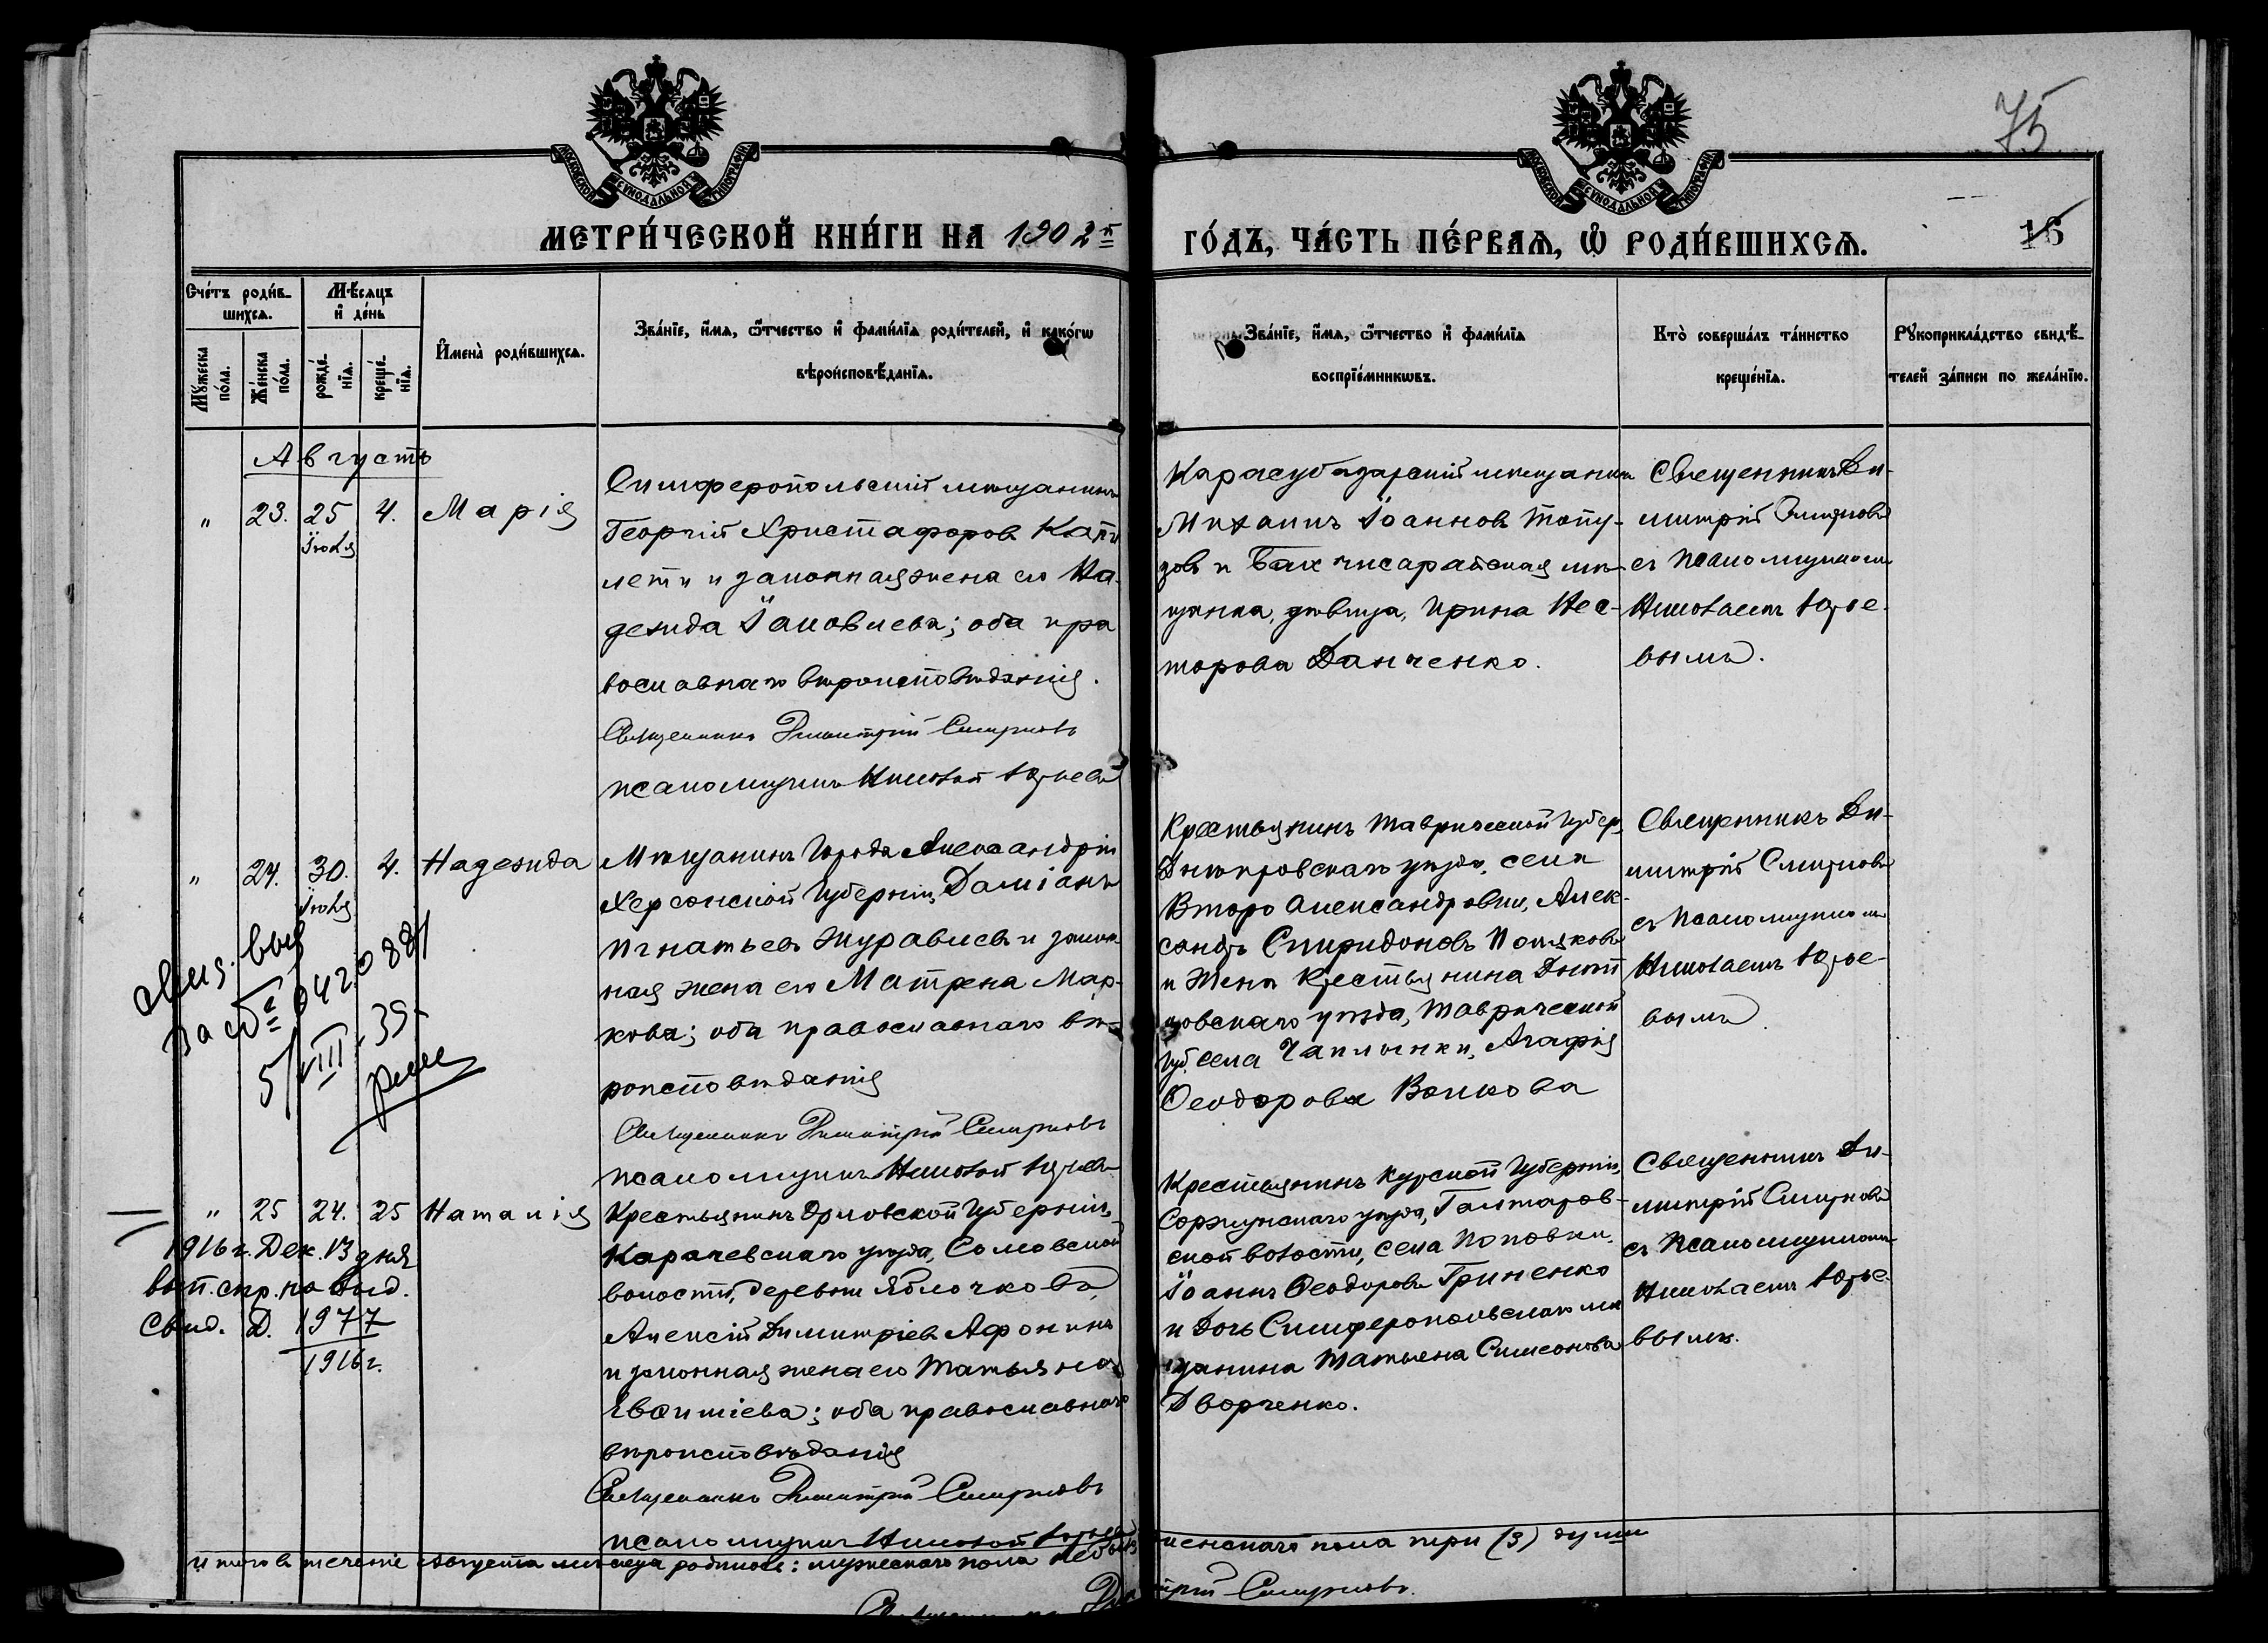 75
МОСКОВСКОЙ СѴНОДАЛЬНОЙ ТИПОГРАФІИ
МОСКОВСКОЙ СѴНОДАЛЬНОЙ ТИПОГРАФІИ
МЕТРИ́ЧЕСКОЙ КНИ́ГИ НА 1902 й
ГО́ДЪ, ЧА́СТЬ ПЕ́РВАѦ, Ѡ РОДИ́ВШИХСѦ.
16
Сче́тъ роди́в-
шихсѧ.
Мѣ́сѧцъ
и де́нь
Мꙋ́жеска по́ла.
Же́нска по́ла.
рожде́-нїѧ.
креще́-нїѧ.
Имена̀ роди́вшихсѧ.
Зва́нїе, и́мѧ, ѻ́тчество и фами́лїѧ роди́телей, и како́гѡ
вѣроисповѣ́данїѧ.
Зва́нїе, и́мѧ, ѻ́тчество и фами́лїѧ
воспрїе́мникѡвъ.
Кто̀ соверша́лъ та́инство
креще́нїѧ.
Рꙋкоприкла́дство свидѣ́-
телей за́писи по жела́нїю.
Августъ
" 23. 25 Іюля 4. Марія
Симферопольскій мѣщанинъ
Георгій Христафоровъ Капи
лети и законная жена его На-
дежда Іаковлева; оба пра
вославнаго вѣроисповѣданія.
Священникъ Димитрій Смирновъ
псаломщикъ Николай Юрьевъ
Карасубазарскій мѣщанинъ
Михаилъ Іоанновъ Топу-
зовъ и Бахчисарайская мѣ-
щанка, дѣвица, Ирина Нес-
торова Данченко.
Священникъ Ди-
митрій Смирновъ
съ псаломщикомъ
Николаемъ Юрье-
вымъ.
" 24. 30. Іюля 4. Надежда
Мѣщанинъ города Александріи
Херсонской губерніи, Даміанъ
Игнатьевъ Журавлевъ и закон
ная жена его Матрена Мар-
кова; оба православнаго вѣ-
роисповѣданія
Священникъ Димитрій Смирновъ
псаломщикъ Николай Юрьевъ
Крестьянинъ Таврической губер.
Днѣпровскаго уѣзда, села
Второ Александровки, Алек-
сандръ Спиридоновъ Поляковъ
и Жена Крестьянина Днѣп
ровскаго уѣзда, Таврической
губ. села Чаплынки, Агафія
Ѳеодорова Волкова
Священникъ Ди-
митрій Смирновъ
съ псаломщикомъ
Николаемъ Юрье-
вымъ.
свид. выд
за №
5/VIII-39
" 25 24. 25 Наталія
1916 г. Дек. 13 дня
вып. спр. на выд.
Свид. Д. 1977
1916 г.
Крестьянинъ Орловской губерніи,
Карачевскаго уѣзда, Сомовской
волости, деревни Яблочкова,
Алексій Димитріевъ Афонинъ
и законная жена его Татьяна
Евѳиміева; оба православнаго
вѣроисповѣданія
Священникъ Димитрій Смирновъ
псаломщикъ Николай Юрьевъ
Крестьянинъ Курской губерніи,
уѣзда,
ской волости, села Поповки,
Іоаннъ Ѳеодоровъ Гриненко
и дочь Симферопольскаго мѣ
щанина Татьяна Симеонова
Дворченко.
Священникъ Ди-
митрій Смирновъ
съ псаломщикомъ
Николаемъ Юрье-
вымъ.
Итого въ теченіе Августа мѣсяца родилось: мужескаго пола женскаго пола три (3) души
Священникъ Димитрій Смирновъ.